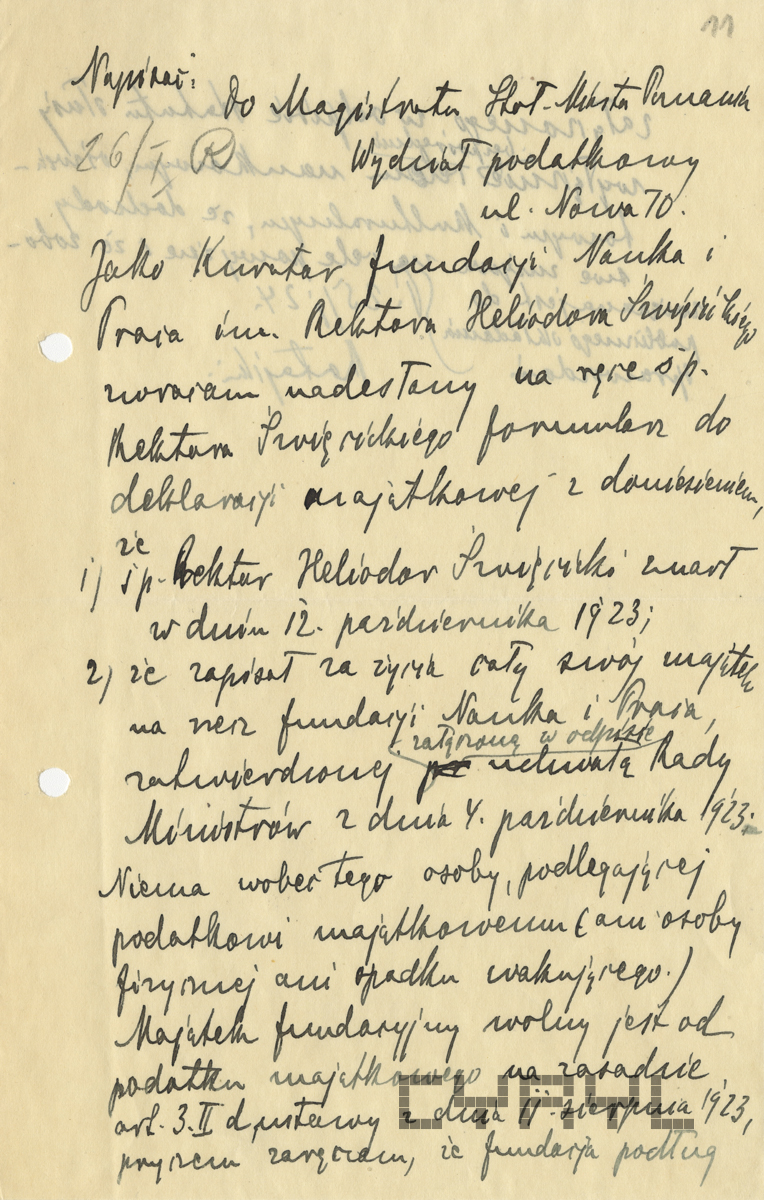 11
Napisać:
Do Magistratu Stoł. Miasta Poznania
26/I R
Wydział podatkowy
ul. Nowa 70.
Jako Kurator fundacji Nauka i
Praca im. Rektora Heliodora Święcickiego
zwracam nadesłany na ręce śp.
Rektora Święcickiego formularz do
deklaracji majątkowej z doniesieniem,
że
1) śp. Rektor Heliodor Święcicki zmarł
w dniu 12. października 1923;
2) że zapisał za życia cały swój majątek
na rzecz fundacji Nauka i Praca,
załączoną w odpisie
zatwierdzonej uchwałą Rady
Ministrów z dnia 4. października 1923.
Niema wobec tego osoby, podlegającej
podatkowi majątkowemu (ani osoby
fizycznej ani spadku wakującego.)
Majątek fundacyjny wolny jest od
podatku majątkowego na zasadzie
art. 3. II d, ustawy z dnia 11. sierpnia 1923,
przyczem zaręczam, że fundacja podług